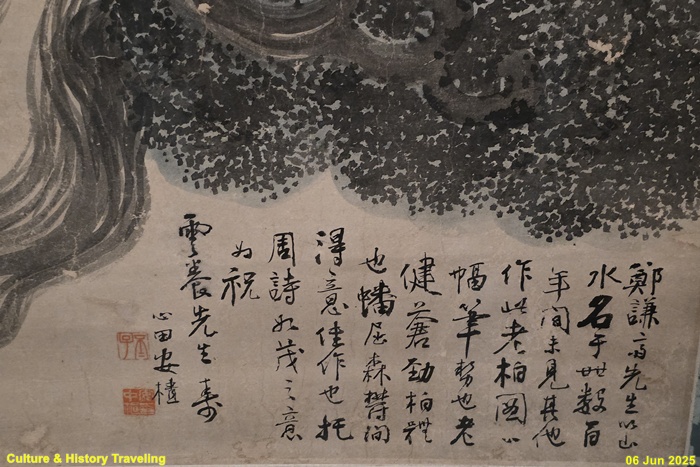 鄭謙斎先生以山
水名于世数百
年間未見其他
作此老柏圖
幅筆勢也老
健蒼勁柏體
也蟠屈森欝洵
得意佳作也托
周詩如茂之意
为祝
雲養先生壽
心田安
Culture & History Traveling
06 Jun 2025